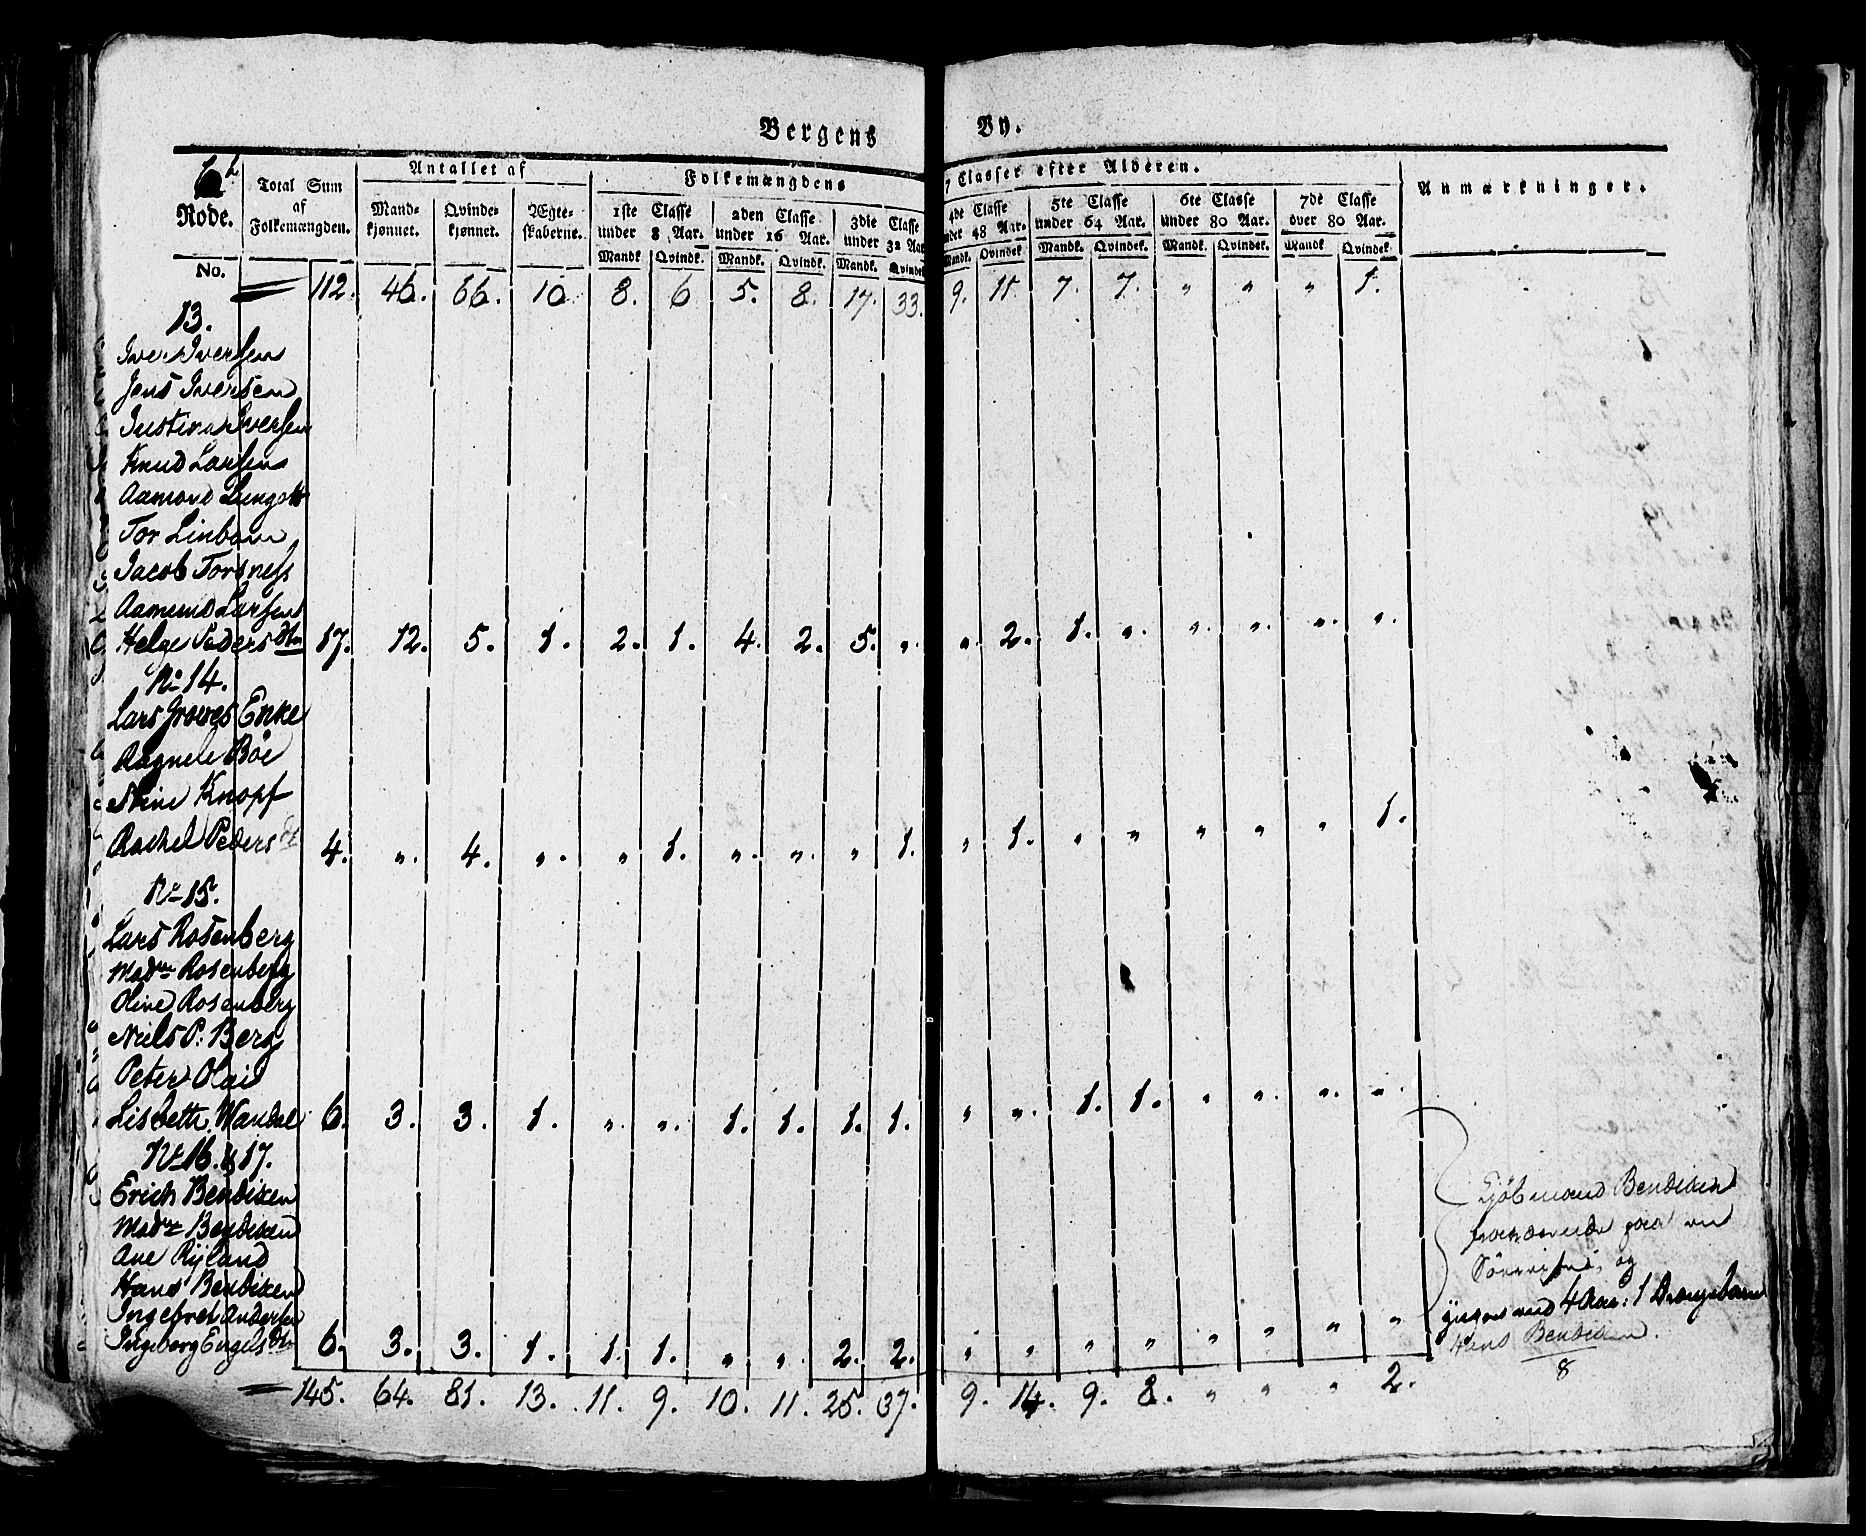 Bergens By.
6te Rode.
Total Sum af Folkemængden.
Antallet af
Mand-kjønnet. Qvinde-kjønnet. Ægte-skaberne.
Folkemængdens 7 Classer efter Alderen.
1ste Classe under 8 Aar. 2den Classe under 16 Aar. 3die Classe under 32 Aar. 4de Classe under 48 Aar. 5te Classe under 64 Aar. 6te Classe under 80 Aar. 7de Classe over 80 Aar.
Mandk. Qvindk. Mandk. Qvindk. Mandk. Qvindek. Mandk. Qvindek. Mandk. Qvindek. Mandk. Qvindek. Mandk. Qvindek.
Anmærkninger.
No.
112. 46. 66. 10 8. 6 5. 8. 17. 33. 9. 11. 7. 7. " " " 1.
13.
Iver Iversen
Jens Iversen
Justina Iversen
Knud Larsen
Aamond
Tor Linbom
Jacob Torsness
Aamund Larsen
Helge Peders dtr 17. 12. 5. 1. 2. 1. 4. 2. 5. " " 2. 1. " " " " "
No 14.
Lars Groves Enke
Ragnele Böe
Stine Knopf
Rachel Peders dt 4. " 4. " " 1. " " " 1. " 1. " " " " " 1.
No 15.
Lars Rosenberg
Madme Rosenberg
Oline Rosenberg
Niels P: Berg
Peter Olai
Lisbeth Wandal 6. 3. 3. 1. " " 1. 1. 1. 1. " " 1. 1. " " " "
No 16. & 17.
Erich Bendixen
Madme Bendixen
Ane Rijland
Hans Bendixen
Ingebret Andersen
Ingeborg Engels dtr 6. 3. 3. 1. 1. 1. " " 2. 2. " " " " " " " "
Kjöbmand Bendixen
paa en
og
4 Aar: 1 Drengebarn
Hans Bendixen.
8
145. 64. 81. 13. 11. 9. 10. 11. 25. 37. 9. 14. 9. 8. " " " 2.